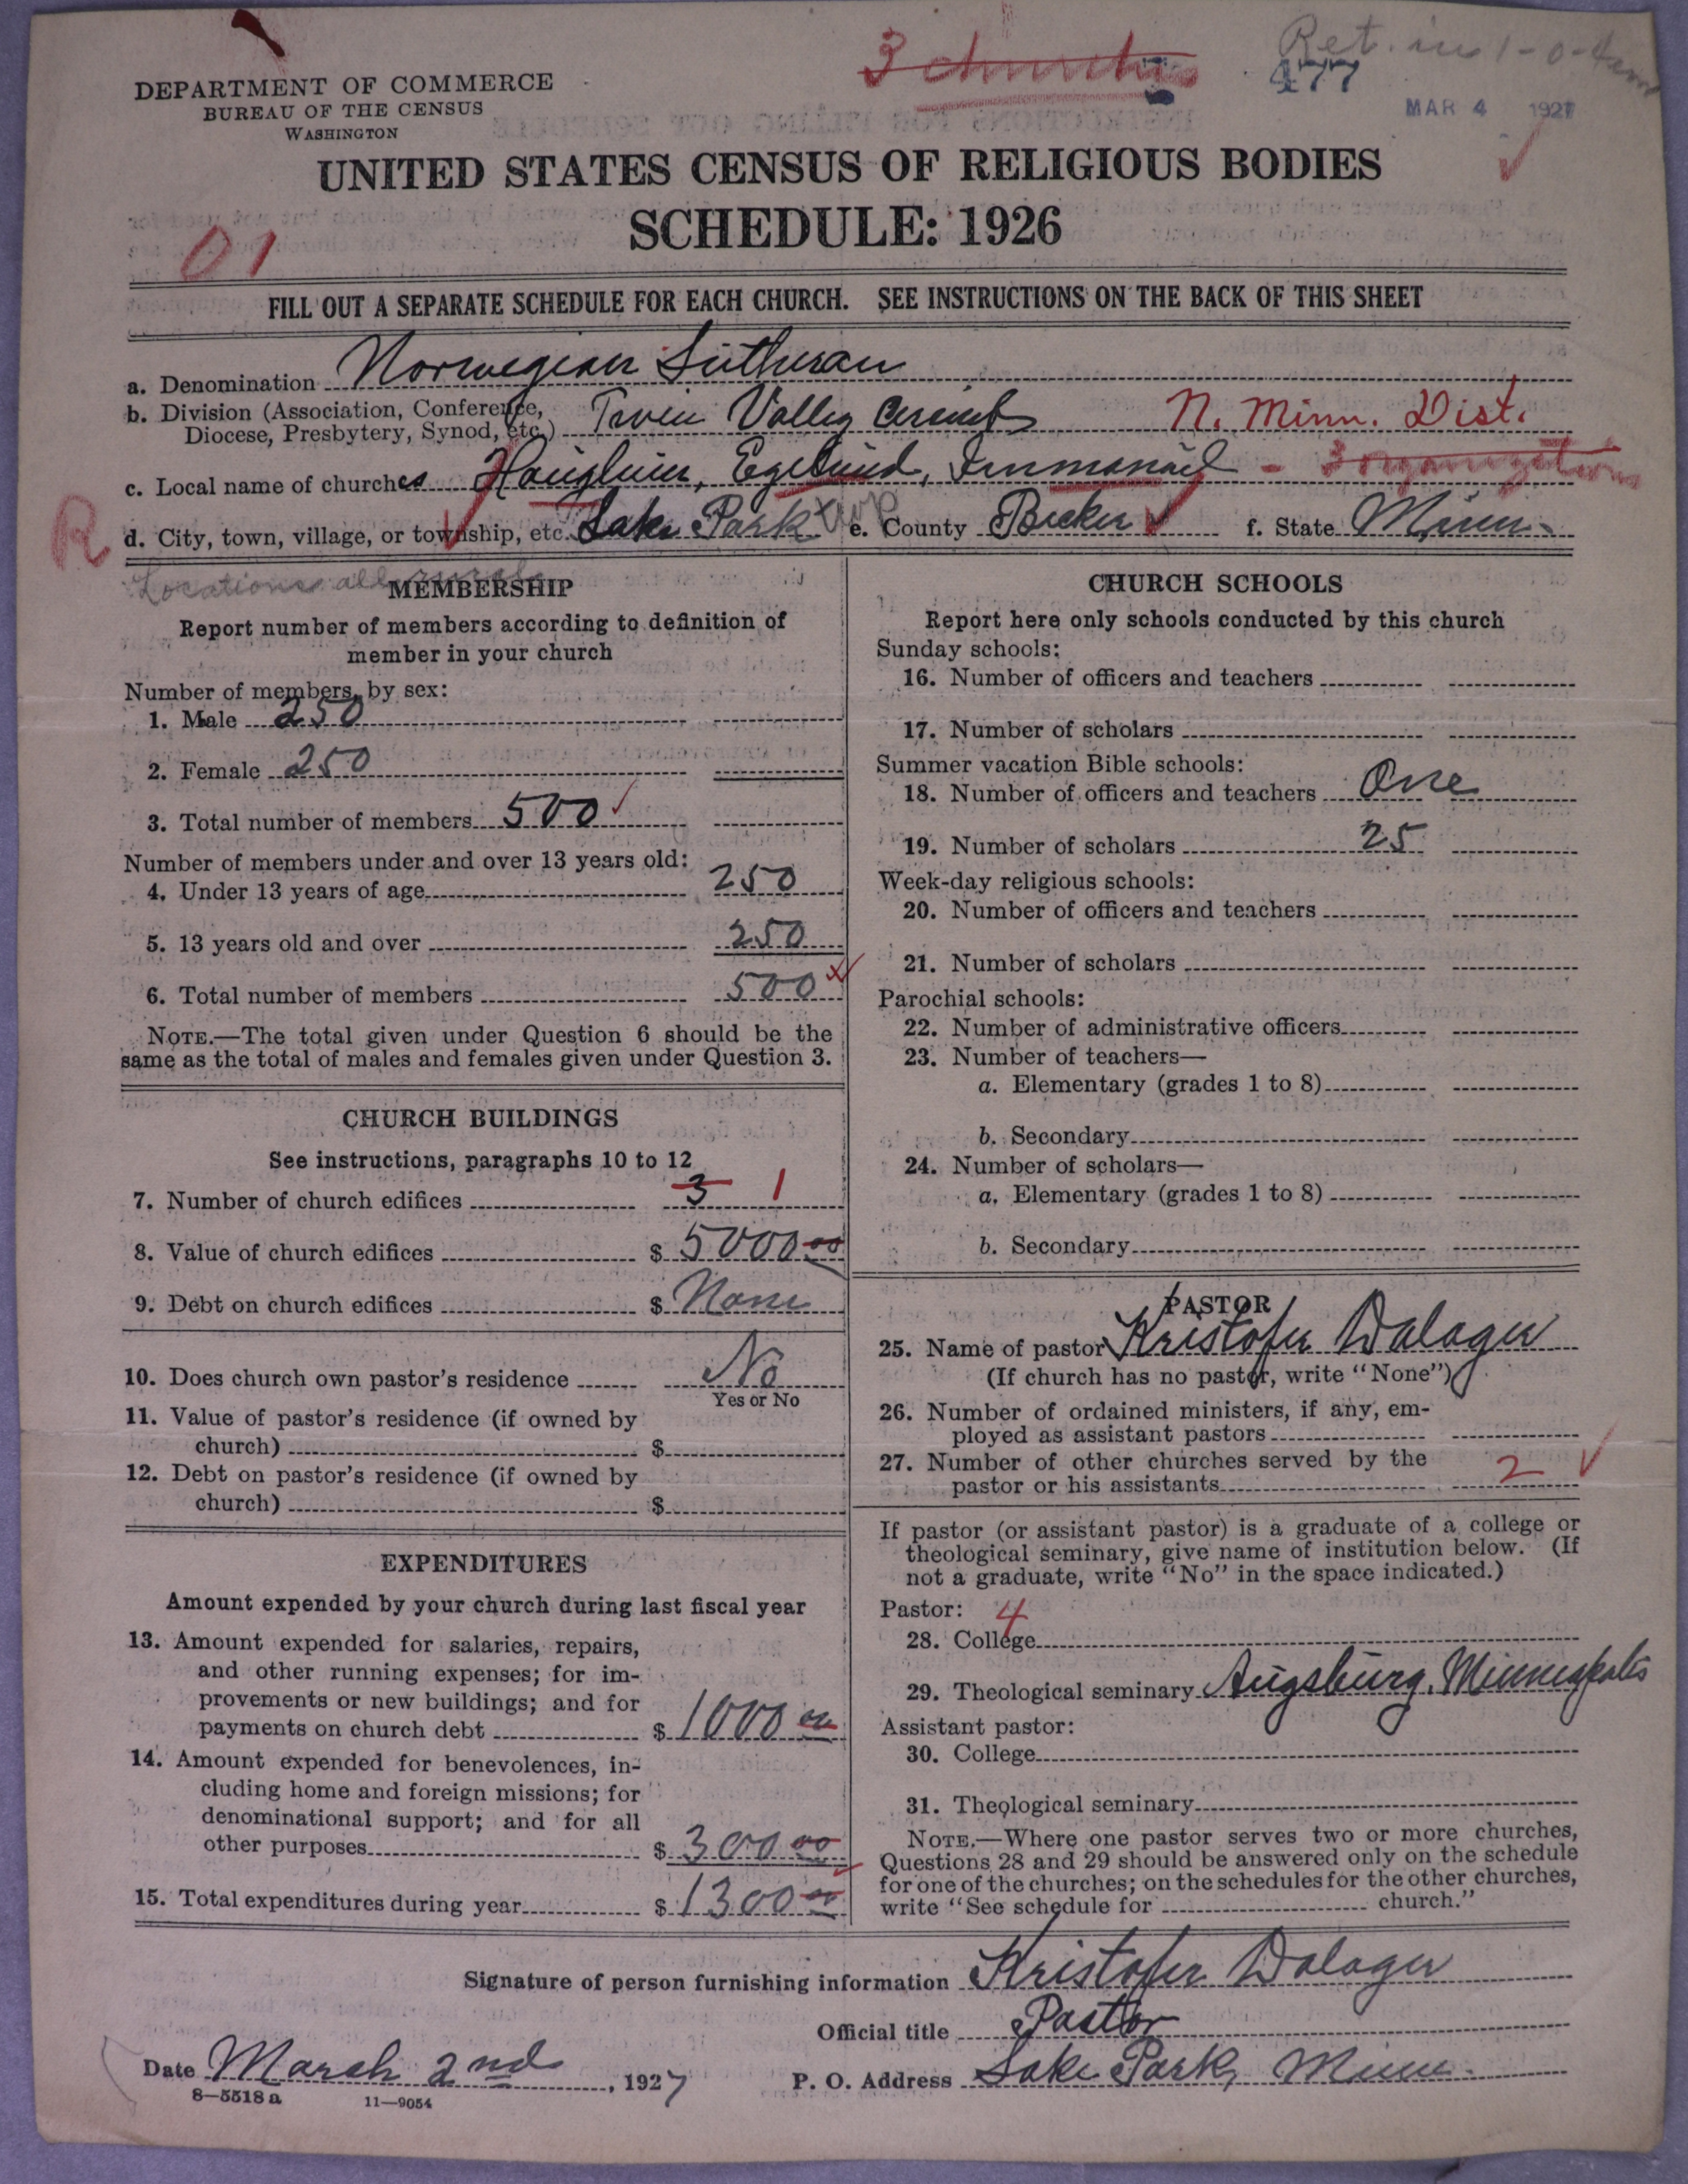 3 churches
Ret. in 1-0-4
477
MAR 4 1927
DEPARTMENT OF COMMERCE
BUREAU OF THE CENSUS
WASHINGTON
UNITED STATES CENSUS OF RELIGIOUS BODIES
SCHEDULE: 1926
01
FILL OUT A SEPARATE SCHEDULE FOR EACH CHURCH. SEE INSTRUCTIONS ON THE BACK OF THIS SHEET
a. Denomination Norwegian Lutheran
b. Division (Association, Conference,
Diocese, Presbytery, Synod, etc.) Twin Valley Circuit N. Minn. Dist.
c. Local name of churches Egelund, Immanuel - 3 organizations
R
d. City, town, village, or township, etc. Lake Park twp e. County Becker f. State Minn.
Locations all rural
MEMBERSHIP
Report number of members according to definition of
member in your church
Number of members, by sex:
1. Male 250
2. Female 250
3. Total number of members 500
Number of members under and over 13 years old:
4. Under 13 years of age 250
5. 13 years old and over 250
6. Total number of members 500
NOTE.—The total given under Question 6 should be the
same as the total of males and females given under Question 3.
CHURCH BUILDINGS
See instructions, paragraphs 10 to 12
7. Number of church edifices 3 1
8. Value of church edifices $ 5000 00
9. Debt on church edifices $ None
10. Does church own pastor's residence No
Yes or No
11. Value of pastor's residence (if owned by
church) $
12. Debt on pastor's residence (if owned by
church) $
EXPENDITURES
Amount expended by your church during last fiscal year
13. Amount expended for salaries, repairs,
and other running expenses; for im-
provements or new buildings; and for
payments on church debt $ 1000 00
14. Amount expended for benevolences, in-
cluding home and foreign missions; for
denominational support; and for all
other purposes $ 300 00
15. Total expenditures during year $ 1300 00
CHURCH SCHOOLS
Report here only schools conducted by this church
Sunday schools:
16. Number of officers and teachers
17. Number of scholars
Summer vacation Bible schools:
18. Number of officers and teachers One
19. Number of scholars 25
Week-day religious schools:
20. Number of officers and teachers
21. Number of scholars
Parochial schools:
22. Number of administrative officers
23. Number of teachers—
a. Elementary (grades 1 to 8)
b. Secondary
24. Number of scholars—
a. Elementary (grades 1 to 8)
b. Secondary
PASTOR
25. Name of pastor Kristofer Dalager
(If church has no pastor, write "None")
26. Number of ordained ministers, if any, em-
ployed as assistant pastors
27. Number of other churches served by the
pastor or his assistants 2
If pastor (or assistant pastor) is a graduate of a college or
theological seminary, give name of institution below. (If
not a graduate, write "No" in the space indicated.)
Pastor: 4
28. College
29. Theological seminary Augsburg, Minneapolis
Assistant pastor:
30. College
31. Theological seminary
NOTE.—Where one pastor serves two or more churches,
Questions 28 and 29 should be answered only on the schedule
for one of the churches; on the schedules for the other churches,
write "See schedule for church."
Signature of person furnishing information Kristofer Dalager
Official title Pastor
Date March 2nd, 1927 P. O. Address Lake Park, Minn.
8—5518 a 11—9054